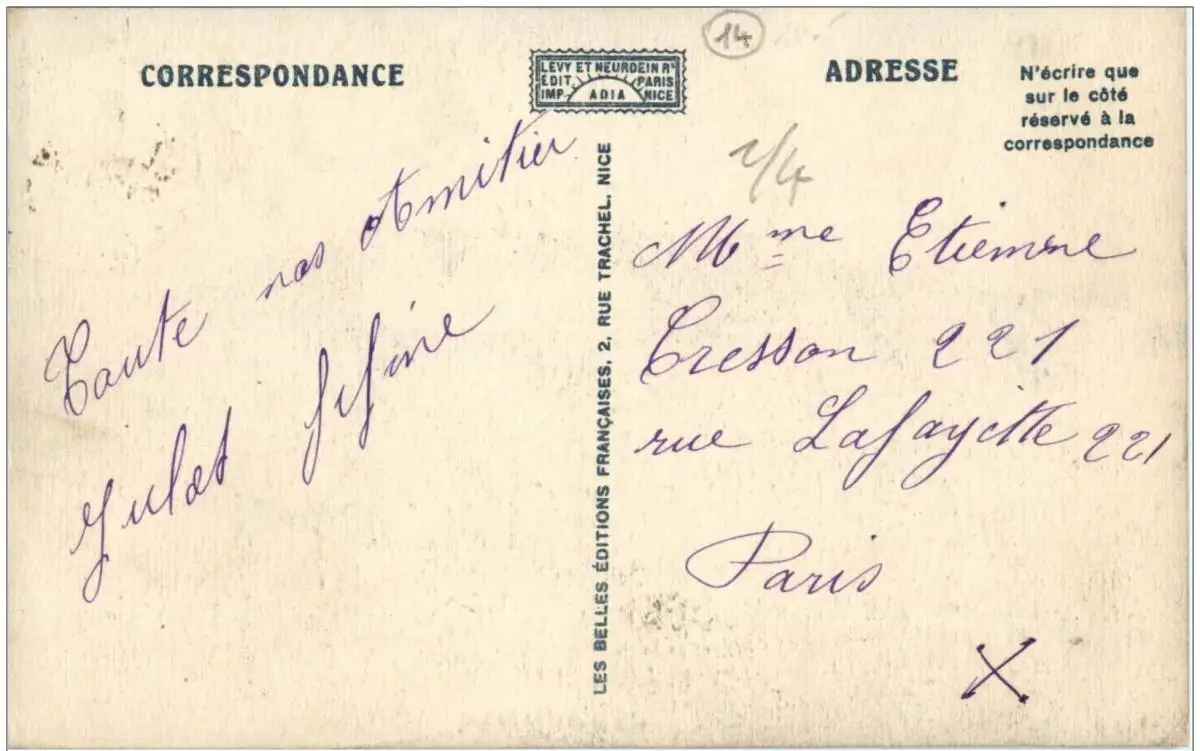 14
CORRESPONDANCE
LEVY ET NEURDEIN Rs
EDIT. PARIS
IMP. ADIA NICE
ADRESSE
N'écrire que
sur le côté
réservé à la
correspondance
LES BELLES ÉDITIONS FRANÇAISES, 2, RUE TRACHEL, NICE
Toute nos Amitier
Jules fifine
1/4
Mme Etienne
Cresson 221
rue Lafayette 221
Paris
X